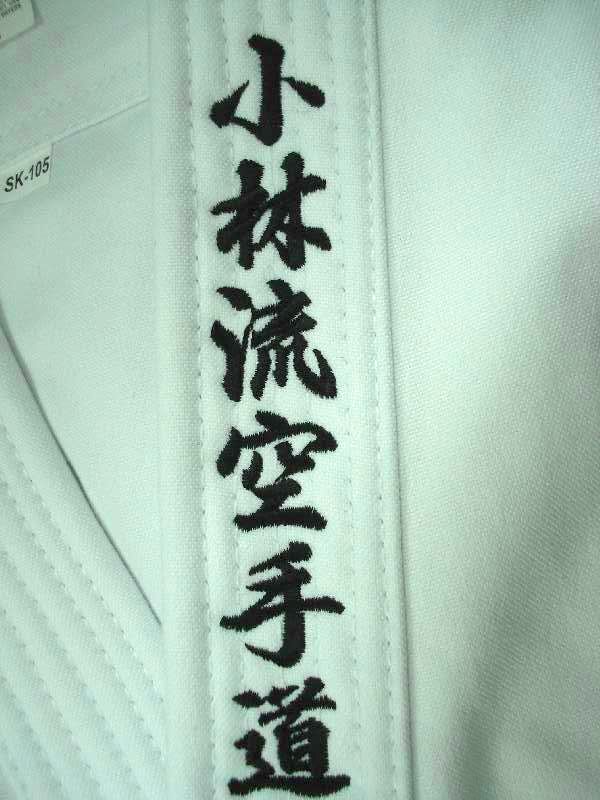 SK-105
小林流空手道